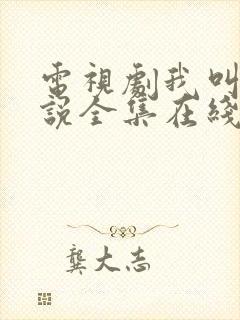 電視劇我叫
說全集在綫
龔大志